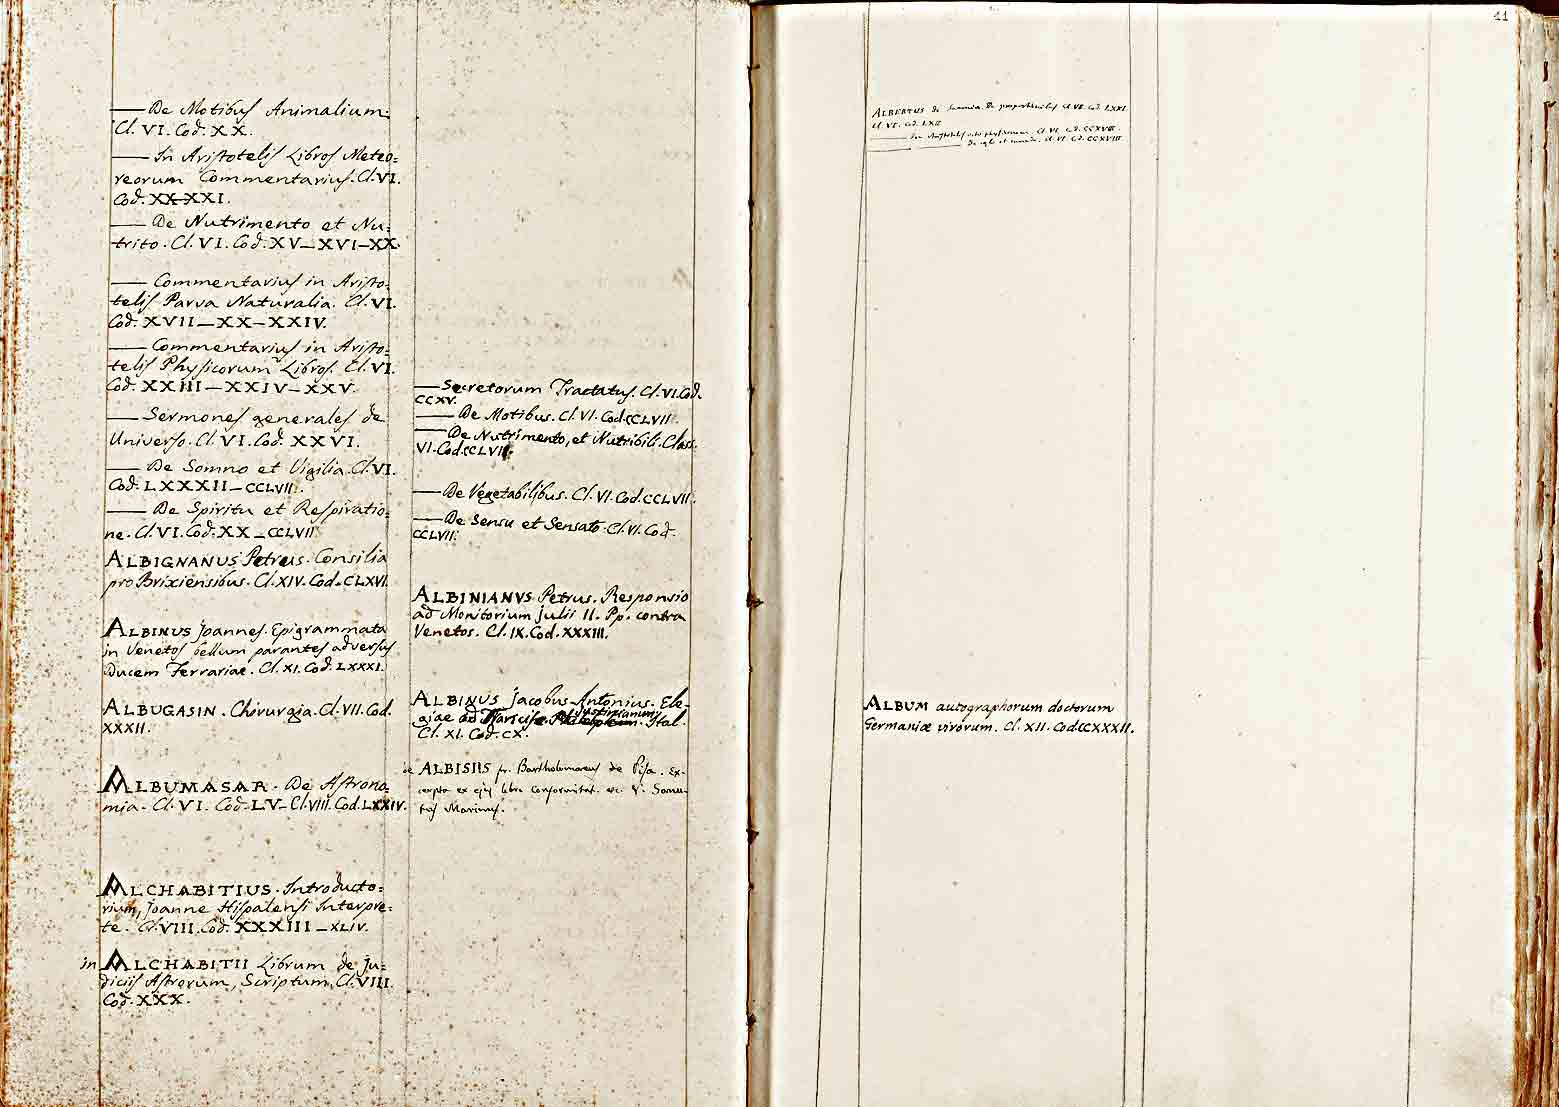 — De Motibus Animalium.
Cl. VI. Cod. XX.
— In Aristotelis Libros Meteo=
reorum Commentarius. Cl. VI.
Cod. XX-XXI.
— De Nutrimento et Nu=
trito. Cl. VI. Cod. XV—XVI—XX.
— Commentarius in Aristo=
telis Parva Naturalia. Cl. VI.
Cod. XVII—XX—XXIV.
— Commentarius in Aristo=
telis Physicorum Libros. Cl. VI.
Cod. XXIII—XXIV—XXV.
— Sermones generales de
Universo. Cl. VI. Cod. XXVI.
— De Somno et Vigilia. Cl. VI.
Cod. LXXXII—CCLVII.
— De Spiritu et Respiratio=
ne. Cl. VI. Cod. XX—CCLVII
ALBIGNANUS Petrus. Consilia
pro Brixiensibus. Cl. XIV. Cod. CLXVI.
ALBINUS Joannes. Epigrammata
in Venetos bellum parantes adversus
Ducem Ferrariae. Cl. XI. Cod. LXXXI.
ALBUGASIN. Chirurgia. Cl. VII. Cod.
XXXII.
ALBUMASAR. De Astrono
mia. Cl. VI. Cod. LV—Cl. VIII. Cod. LXXIV.
ALCHABITIUS. Introducto=
rium, Joanne Hispalensi Interpre=
te. Cl. VIII. Cod. XXXIII—XLIV.
in ALCHABITII Librum de Ju=
diciis Astrorum, Scriptum, Cl. VIII.
Cod. XXX.
— Secretorum Tractatus. Cl. VI. Cod.
CCXV.
— De Motibus. Cl. VI. Cod. CCLVII.
— De Nutrimento, et Nutribili. Class.
VI. Cod. CCLVII.
— De Vegetabilibus. Cl. VI. Cod. CCLVII.
— De Sensu et Sensato. Cl. VI. Cod.
CCLVII.
ALBINIANVS Petrus. Responsio
ad Monitorium Julii II. Pp. contra
Venetos. Cl. IX. Cod. XXXIII.
ALBINUS Jacobus Antonius. Ele-
giae ad Justinianum. Ital.
Cl. XI. Cod. CX.
de ALBISIIS fr. Bartholomaeus de Pisa. Ex-
cerpta ex ejus libro conformitat. etc. V. Sanu-
tus Marinus.
11
ALBERTUS de Saxonia. De proportionibus Cl. VI. Cod. LXXI.
Cl. VI. Cod. LXII
— In Aristotelis octo physicorum. Cl. VI. Cod. CCXVIII.
— De caelo et mundo. Cl. VI. Cod. CCXVIII
ALBUM autographorum doctorum
Germaniæ virorum. Cl. XII. Cod. CCXXXII.